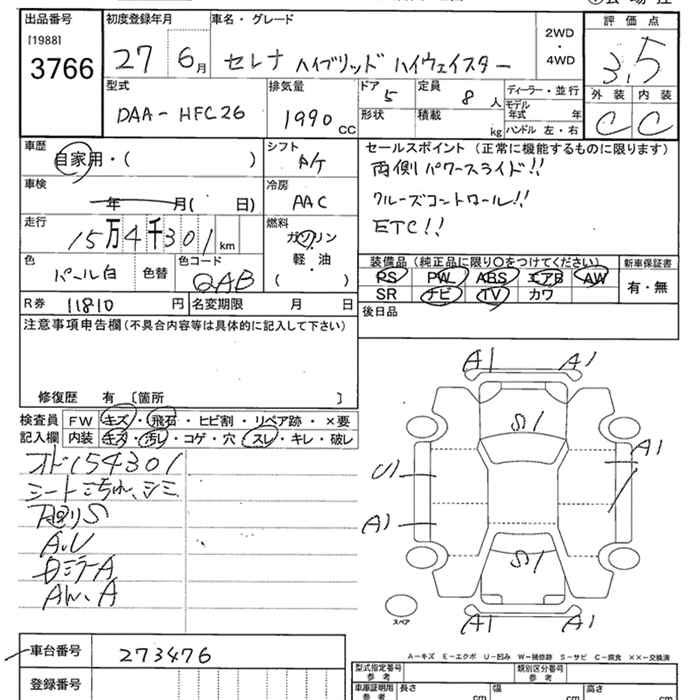 出品番号
[1988]
3766
初度登録年月
27 6月
車名・グレード
セレナ ハイブリッド ハイウェイスター
2WD
・
4WD
評価点
3.5
外装 内装
C C
型式
DAA-HFC26
排気量
1990 CC
ドア 5
形状
定員 8 人
積載 kg
ディーラー・並行
モデル年式 年
ハンドル 左・右
車歴
自家用・( )
シフト
冷房
AAC
車検
年 月( 日)
走行
15万4千301km
燃料
ガソリン
軽・油
( )
色
パール白
色替
色コード
QAB
R券 11810 円
名変期限 月 日
セールスポイント (正常に機能するものに限ります)
両側パワースライド!!
クルーズコントロール!!
ETC!!
装備品 (純正品に限り○をつけてください)
PS PW ABS エアB AW
SR ナビ TV カワ
新車保証書
有・無
後日品
注意事項申告欄(不具合内容等は具体的に記入して下さい)
修復歴 有 [箇所 ]
検査員
記入欄
FW キズ・飛石・ヒビ割・リペア跡・×要
内装 キズ・汚レ・コゲ・穴・スレ・キレ・破レ
オド154301
シート汚れ、シミ
下回りS
A.U
AW.A
A1 A1
S1
A1
U1
A1
S1
A1 A1
スペア
A-キズ E-エクボ U-凹み W-補修跡 S-サビ C-腐食 ××-交換済
車台番号 273476
登録番号
型式指定番号
参考
類別区分番号
参考
車庫証明用
参考
長さ cm
幅 cm
高さ cm